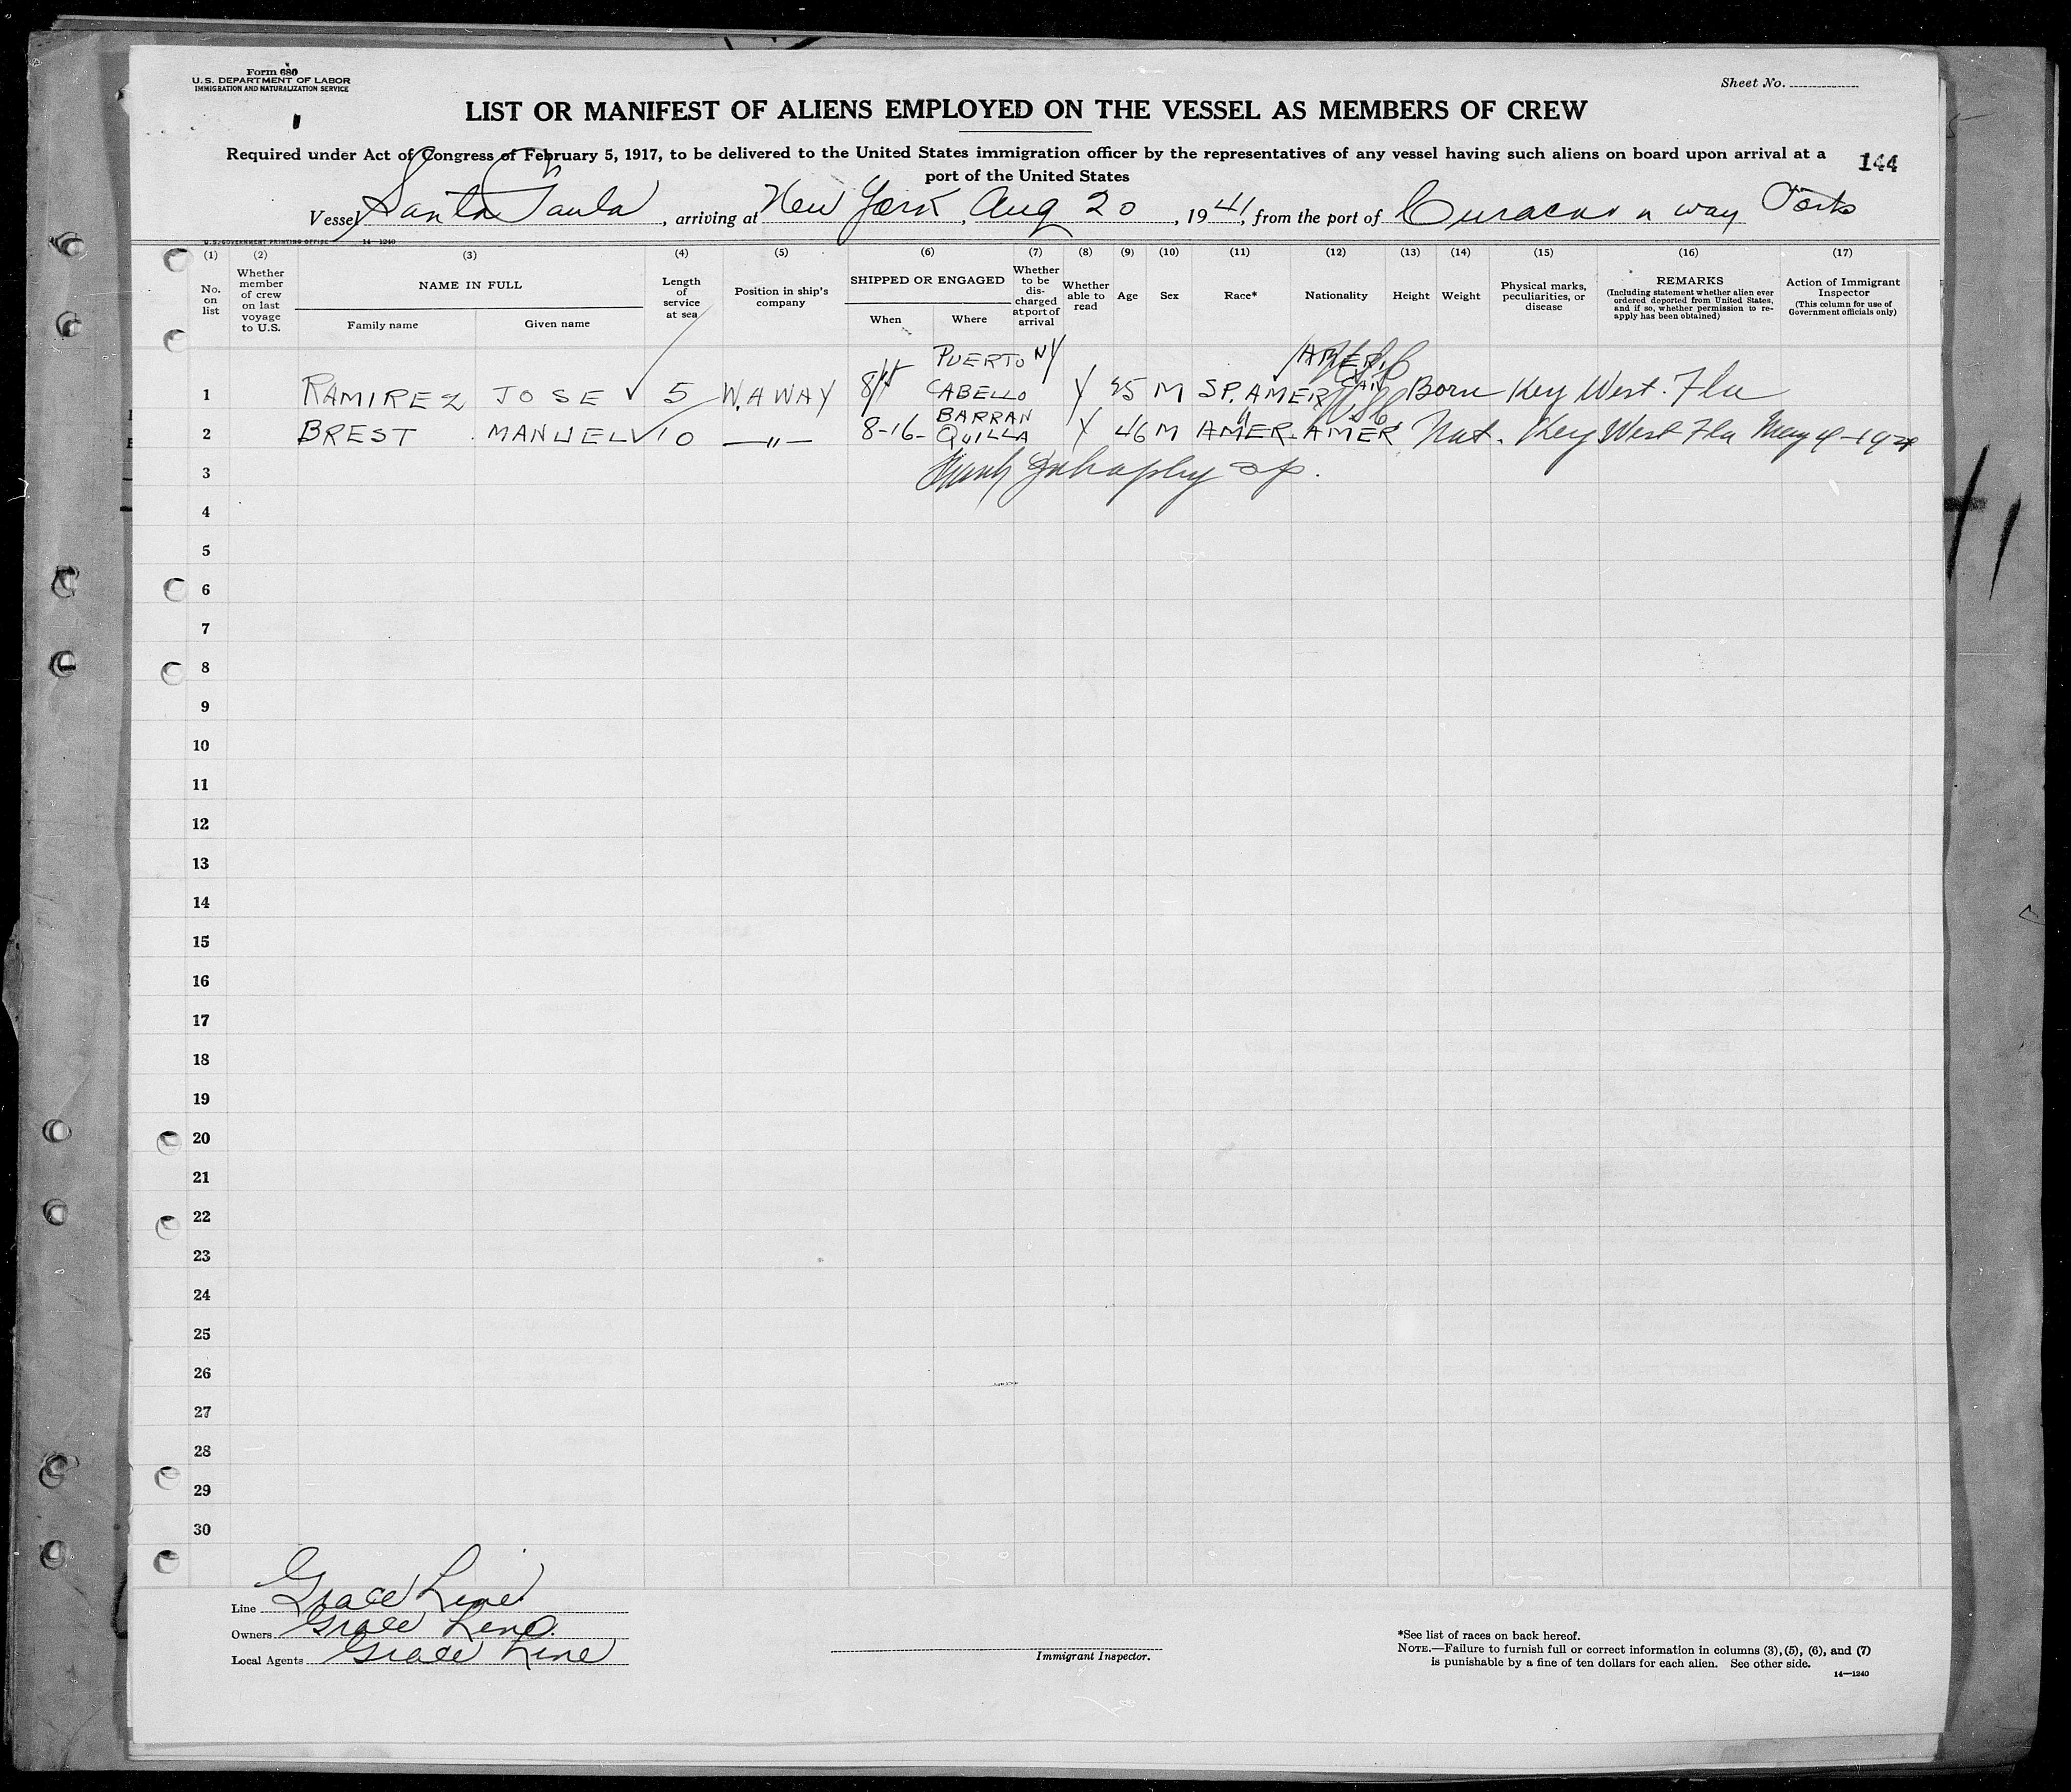 Form 680
U. S. DEPARTMENT OF LABOR
IMMIGRATION AND NATURALIZATION SERVICE
Sheet No.
LIST OR MANIFEST OF ALIENS EMPLOYED ON THE VESSEL AS MEMBERS OF CREW
Required under Act of Congress of February 5, 1917, to be delivered to the United States immigration officer by the representatives of any vessel having such aliens on board upon arrival at a
port of the United States
144
Vessel Santa Paula, arriving at New York, Aug 20, 1941, from the port of Curacao n way Ports
U. S. GOVERNMENT PRINTING OFFICE 14-1240
(1) (2) (3) (4) (5) (6) (7) (8) (9) (10) (11) (12) (13) (14) (15) (16) (17)
No. on list
Whether member of crew on last voyage to U.S.
NAME IN FULL
Family name
Given name
Length of service at sea
Position in ship's company
SHIPPED OR ENGAGED
When
Where
Whether to be discharged at port of arrival
Whether able to read
Age
Sex
Race*
Nationality
Height
Weight
Physical marks, peculiarities, or disease
REMARKS
(Including statement whether alien ever ordered deported from United States, and if so, whether permission to reapply has been obtained)
Action of Immigrant Inspector
(This column for use of Government officials only)
1 RAMIREZ JOSE 5 W.AWAY PUERTO CABELLO NY Y M SP. AMER AMERICAN Born Key West. Fla
2 BREST MANUEL 10 —"— 8-16- BARRANQUILLA Y 46 M AMER. AMER Nat. Key West Fla May 4-
3
4
5
6
7
8
9
10
11
12
13
14
15
16
17
18
19
20
21
22
23
24
25
26
27
28
29
30
Line Grace Line
Owners Grace Line
Local Agents Grace Line
Immigrant Inspector.
*See list of races on back hereof.
NOTE.—Failure to furnish full or correct information in columns (3), (5), (6), and (7)
is punishable by a fine of ten dollars for each alien. See other side.
14—1240